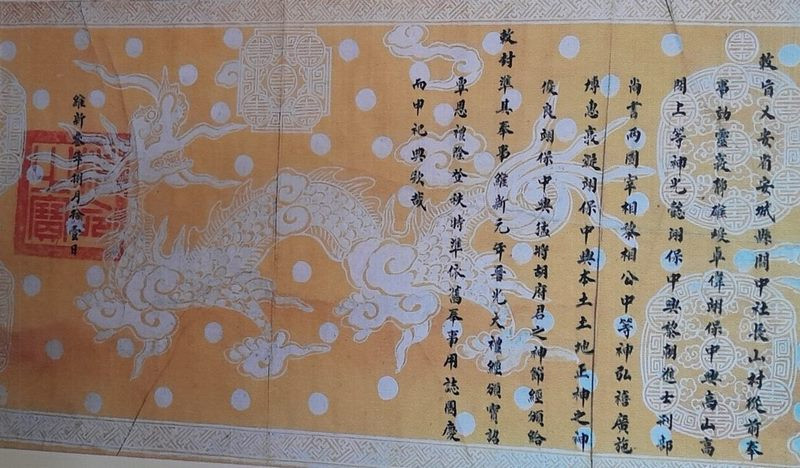 敕旨乂安省安城縣關中社長山村從前奉
事靈雄峻卓偉翊保中興高山高
閣上等神光懿翊保中興黎朝進士刑部
尚書兩國宰相黎相公中等神弘禧廣施
博惠衷凝翊保中興本土土地正神之神
俊良翊保中興猛將胡府君之神節經頒給
敕封準其奉事維新元年晉光大禮經頒寶詔
覃恩禮隆登秩特準依舊奉事用誌國慶
而申祀典欽哉
維新叁年捌月拾壹日
敕命之寶